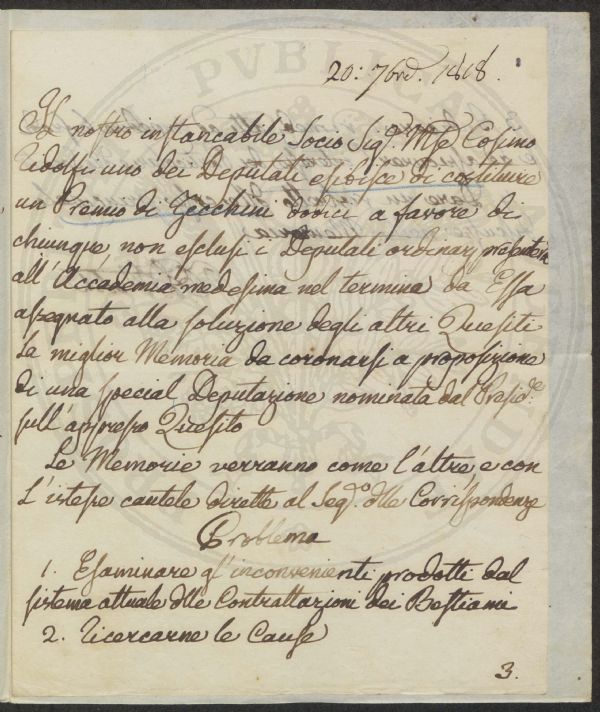 20: 7bre. 1818.
Il nostro instancabile Socio Sig.r Mse Cosimo
Ridolfi uno dei Deputati esibisce di costituire
un Premio di Zecchini dodici a favore di
chiunque non esclusi i Deputati ordinarj presenterà
all'Accademia medesima nel termina da Essa
assegnato alla soluzione degli altri Quesiti
la miglior Memoria da coronarsi a proposizione
di una special Deputazione nominata dal Presid.e
sull'appresso Quesito
Le Memorie verranno come l'altre e con
l'istesse cautele dirette al Seg.o dlle Corrispondenze
Problema
1. Esaminare gl'inconvenienti prodotti dal
sistema attuale dlle Contrattazioni dei Bestiami
2. Ricercarne le Cause
3.
PVBLICA